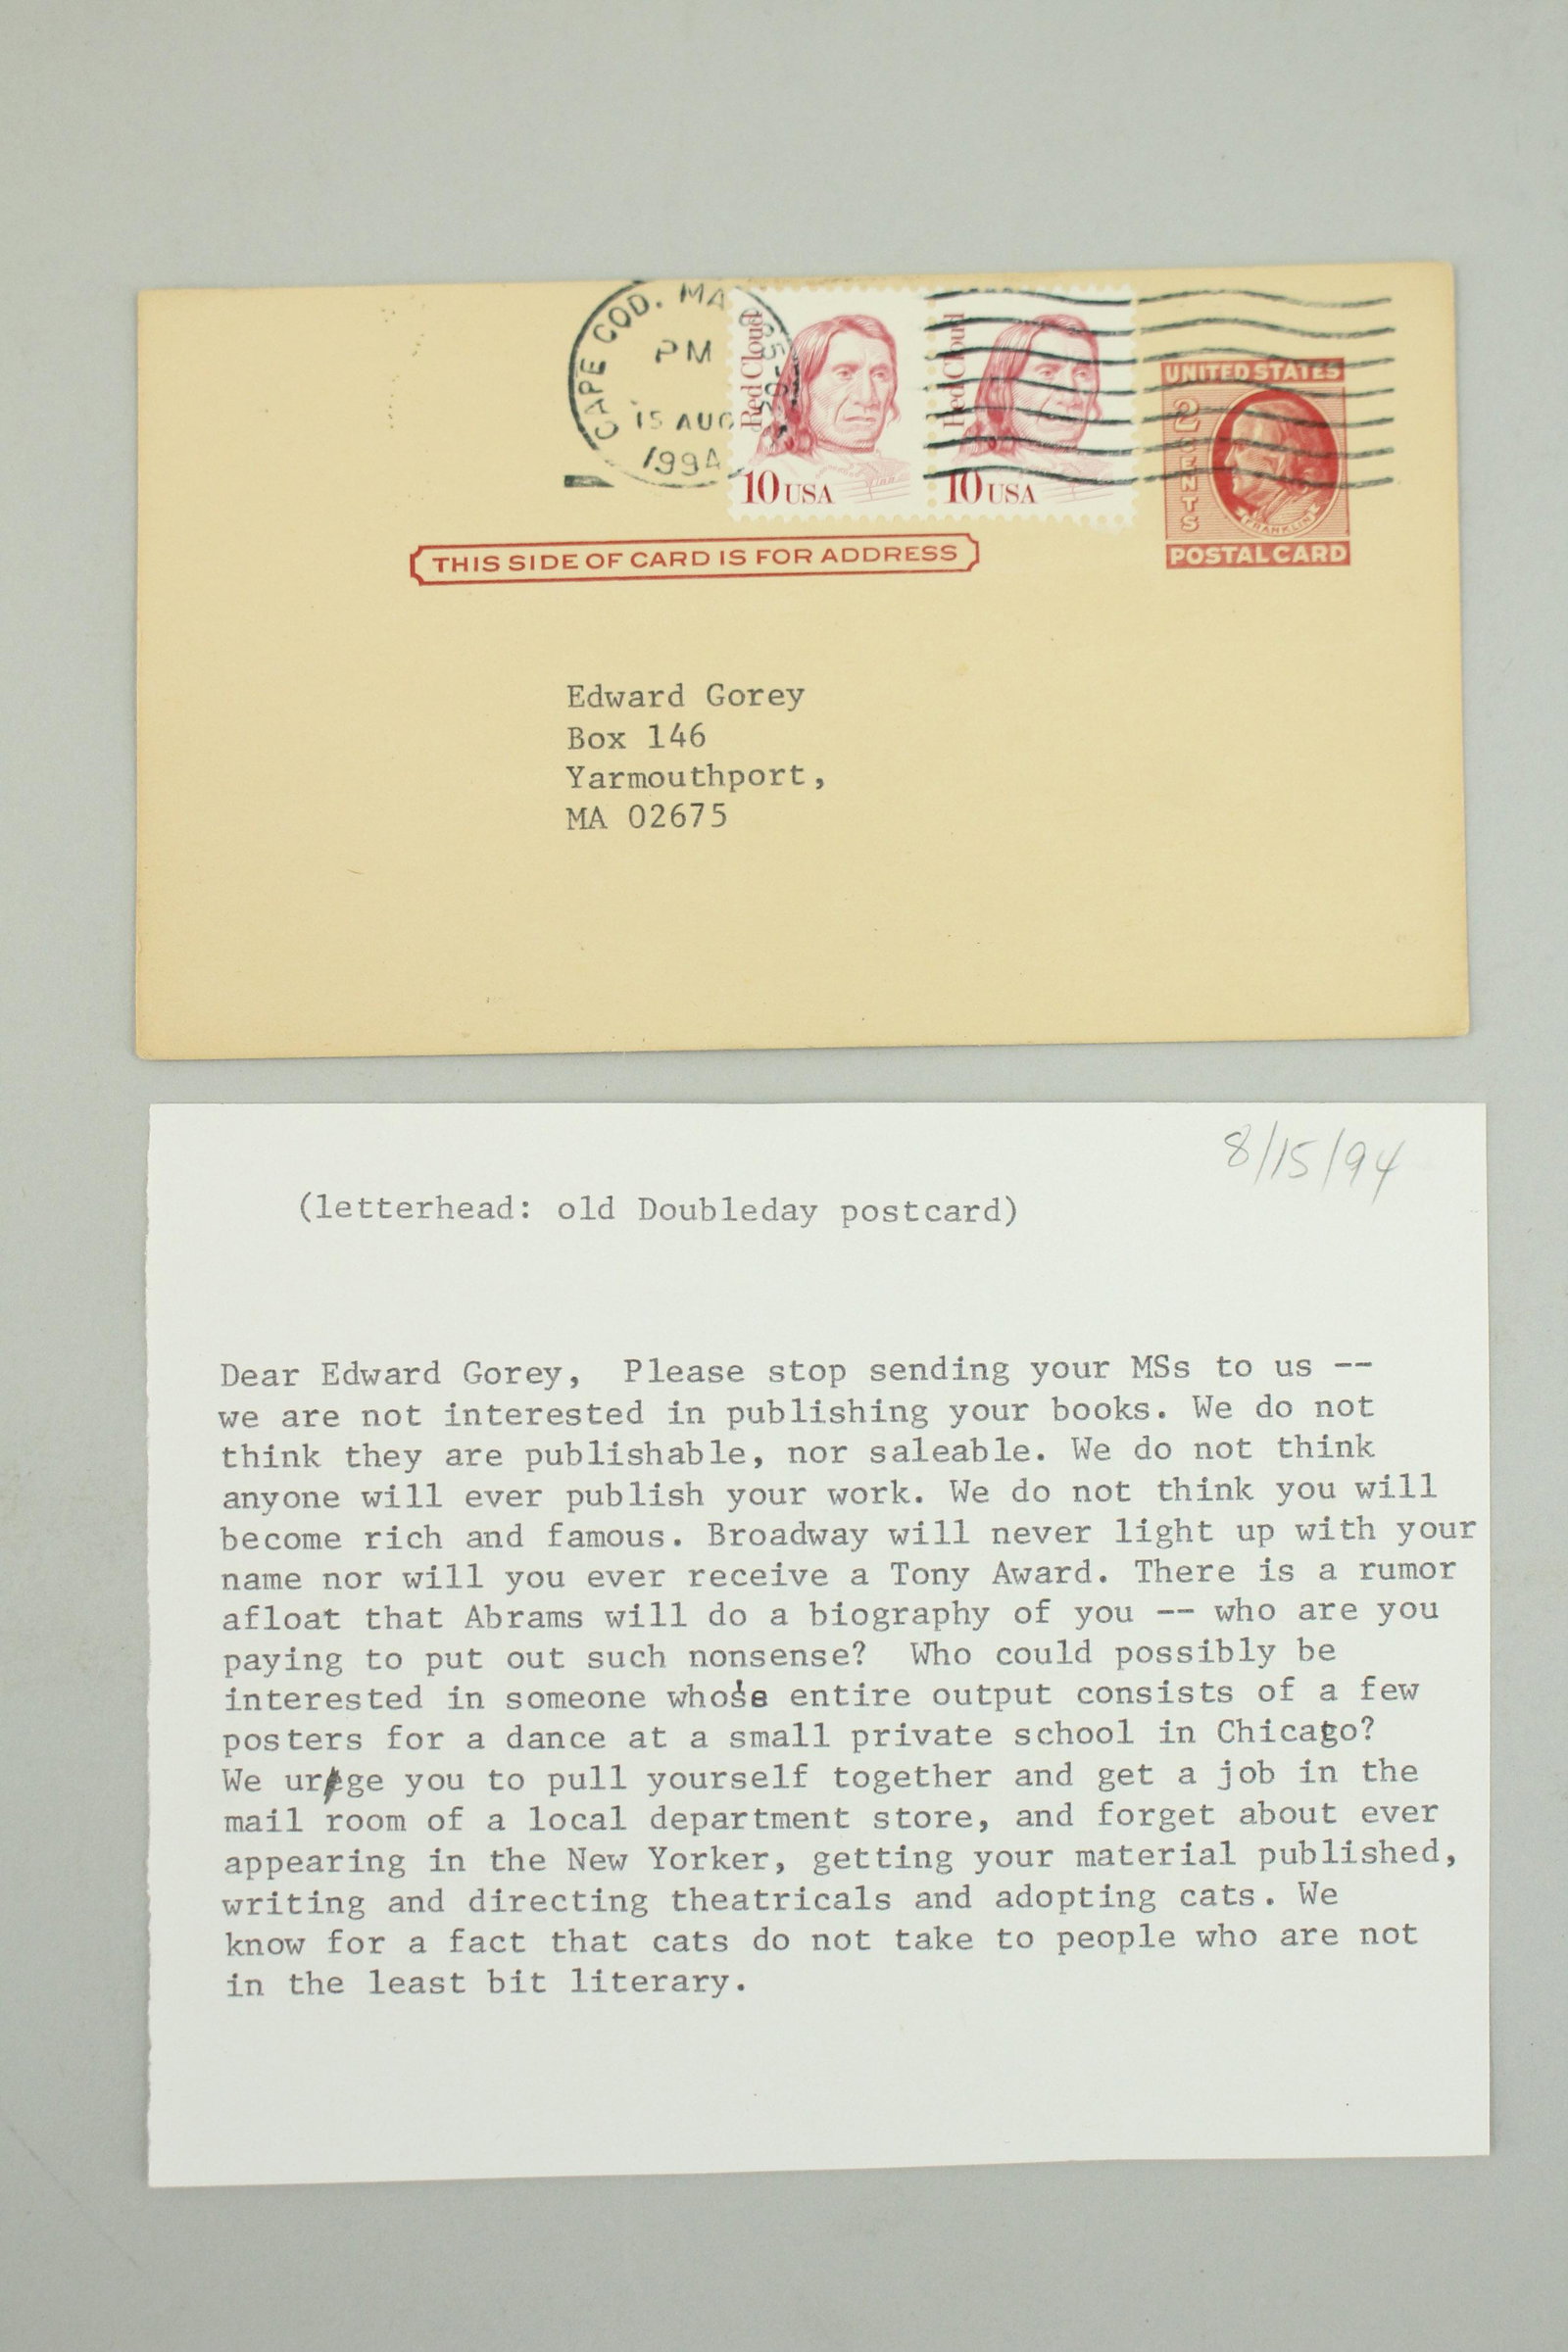 CAPE COD. MA
PM
15 AUG
1994
Red Cloud
10 USA
Red Cloud
10 USA
UNITED STATES
2 CENTS
FRANKLIN
POSTAL CARD
THIS SIDE OF CARD IS FOR ADDRESS
Edward Gorey
Box 146
Yarmouthport,
MA 02675
8/15/94
(letterhead: old Doubleday postcard)
Dear Edward Gorey, Please stop sending your MSs to us --
we are not interested in publishing your books. We do not
think they are publishable, nor saleable. We do not think
anyone will ever publish your work. We do not think you will
become rich and famous. Broadway will never light up with your
name nor will you ever receive a Tony Award. There is a rumor
afloat that Abrams will do a biography of you -- who are you
paying to put out such nonsense? Who could possibly be
interested in someone whose entire output consists of a few
posters for a dance at a small private school in Chicago?
We urge you to pull yourself together and get a job in the
mail room of a local department store, and forget about ever
appearing in the New Yorker, getting your material published,
writing and directing theatricals and adopting cats. We
know for a fact that cats do not take to people who are not
in the least bit literary.